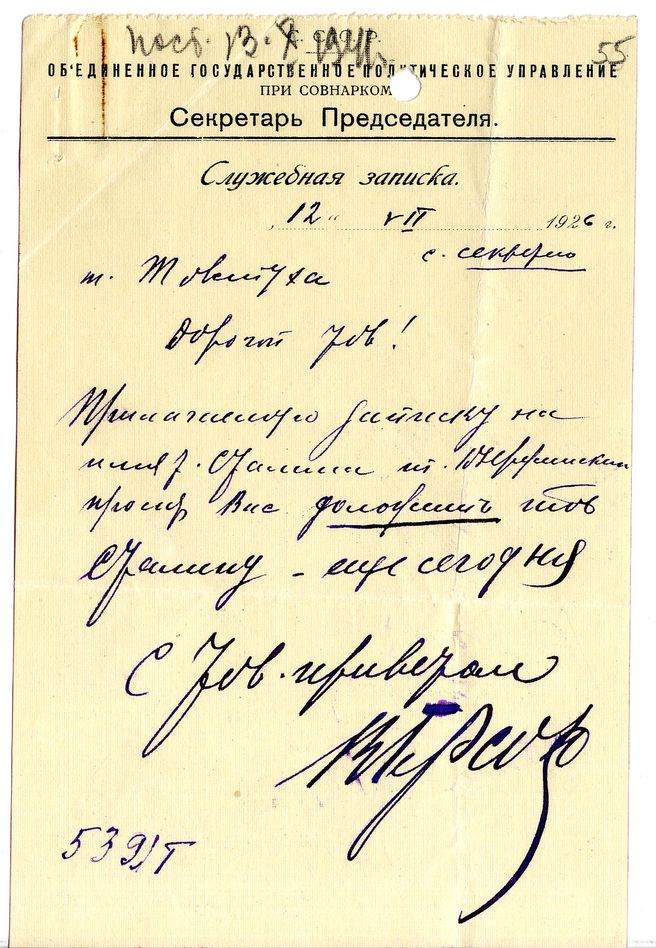 Пост. 13.X 1941г.
С.С.С.Р.
55
ОБ'ЕДИНЕННОЕ ГОСУДАРСТВЕННОЕ ПОЛИТИЧЕСКОЕ УПРАВЛЕНИЕ
ПРИ СОВНАРКОМ
Секретарь Председателя.
Служебная записка.
„12“ VII 1926 г.
с. секретно
т. Товстуха
Дорогой Тов!
Прилагаемую записку на
имя т. Сталина т. Дзержинский
просит Вас доложить тов
Сталину - еще сегодня
С Тов. приветом
ВГерсон
539/Т